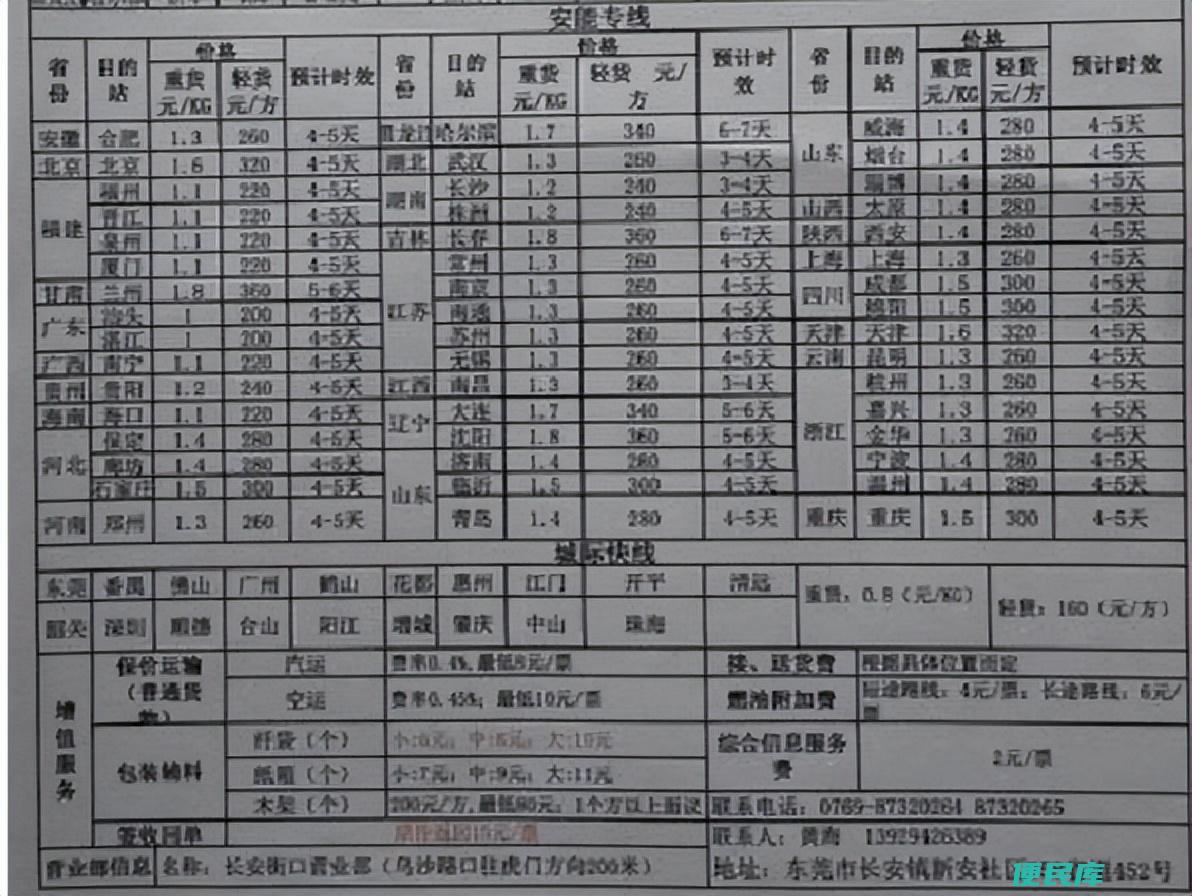 安能专线
省份 目的站 价格 预计时效 省份 目的站 价格 预计时效 省份 目的站 价格 预计时效
重货元/KG 轻货元/方 重货元/KG 轻货 元/方 重货元/KG 轻货元/方
安徽 合肥 1.3 260 4-5天 黑龙江 哈尔滨 1.7 340 6-7天 山东 威海 1.4 280 4-5天
北京 北京 1.6 320 4-5天 湖北 武汉 1.3 260 3-4天 烟台 1.4 280 4-5天
福建 福州 1.1 220 4-5天 湖南 长沙 1.2 240 3-4天 淄博 1.4 280 4-5天
晋江 1.1 220 4-5天 株洲 1.2 240 4-5天 山西 太原 1.4 280 4-5天
泉州 1.1 220 4-5天 吉林 长春 1.8 360 6-7天 陕西 西安 1.4 280 4-5天
厦门 1.1 220 4-5天 江苏 常州 1.3 260 4-5天 上海 上海 1.3 260 4-5天
甘肃 兰州 1.8 360 5-6天 南京 1.3 260 4-5天 四川 成都 1.5 300 4-5天
广东 汕头 1 200 4-5天 南通 1.3 260 4-5天 绵阳 1.5 300 4-5天
湛江 1 200 4-5天 苏州 1.3 260 4-5天 天津 天津 1.6 320 4-5天
广西 南宁 1.1 220 4-5天 无锡 1.3 260 4-5天 云南 昆明 1.3 260 4-5天
贵州 贵阳 1.2 240 4-5天 江西 南昌 1.3 260 3-4天 浙江 杭州 1.3 260 4-5天
海南 海口 1.1 220 4-5天 辽宁 大连 1.7 340 5-6天 嘉兴 1.3 260 4-5天
河北 保定 1.4 280 4-5天 沈阳 1.8 360 5-6天 金华 1.3 260 4-5天
廊坊 1.4 280 4-5天 山东 济南 1.4 280 4-5天 宁波 1.4 280 4-5天
石家庄 1.5 300 4-5天 临沂 1.5 300 4-5天 温州 1.4 280 4-5天
河南 郑州 1.3 260 4-5天 青岛 1.4 280 4-5天 重庆 重庆 1.5 300 4-5天
城际快线
东莞 番禺 佛山 广州 鹤山 花都 惠州 江门 开平 清远 重货：0.8（元/KG） 轻货：160（元/方）
韶关 深圳 顺德 台山 阳江 增城 肇庆 中山 珠海
增值服务 保价运输（普通货物） 汽运 费率0.4%,最低8元/票 接、送货费 根据具体位置而定
空运 费率0.45%；最低10元/票 燃油附加费 短途路线：4元/票；长途路线：6元/票
包装辅料 纤袋（个） 中:8元；大:10元 综合信息服务费 2元/票
纸箱（个） 小:7元；中:9元；大:11元
木架（个） 200元/方,最低80元；1个方以上面议 联系电话：0769-87320264 87320265
签收回单 联系人：黄海 13929426389
营业部信息 名称：长安街口营业部（乌沙路口往虎门方向200米） 地址：东莞市长安镇新安社区 452号
便民库